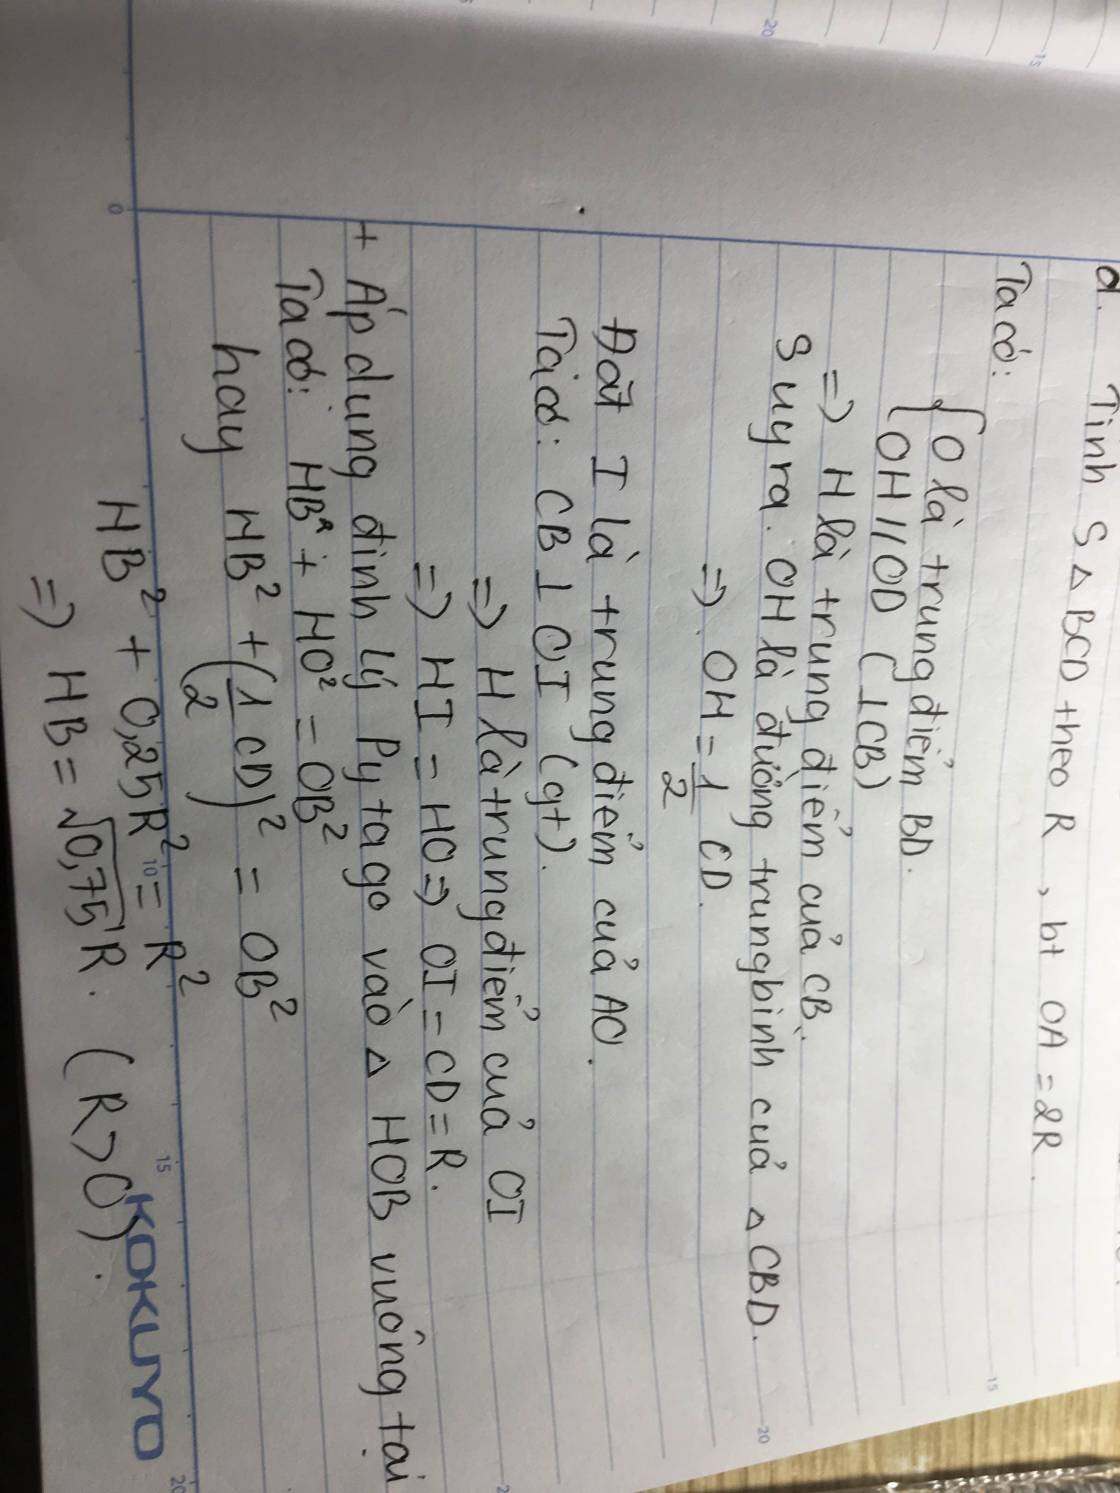 d. Tính S △ BCD theo R, bt OA = 2R.
Ta có:
{O là trung điểm BD.
{OH // OD (⊥CB)
=> H là trung điểm của CB.
Suy ra. OH là đường trung bình của △ CBD.
=> OH = 1/2 CD.
Đặt I là trung điểm của AO.
Ta có: CB ⊥ OI (gt).
=> H là trung điểm của OI
=> HI = HO => OI = CD = R.
+ Áp dụng định lý Pytago vào △ HOB vuông tại
Ta có: HB² + HO² = OB²
hay HB² + (1/2 CD)² = OB²
HB² + 0,25R² = R²
=> HB = √0,75 R. (R>0).
KOKUYO
0
10
15
20
15
20
20
15